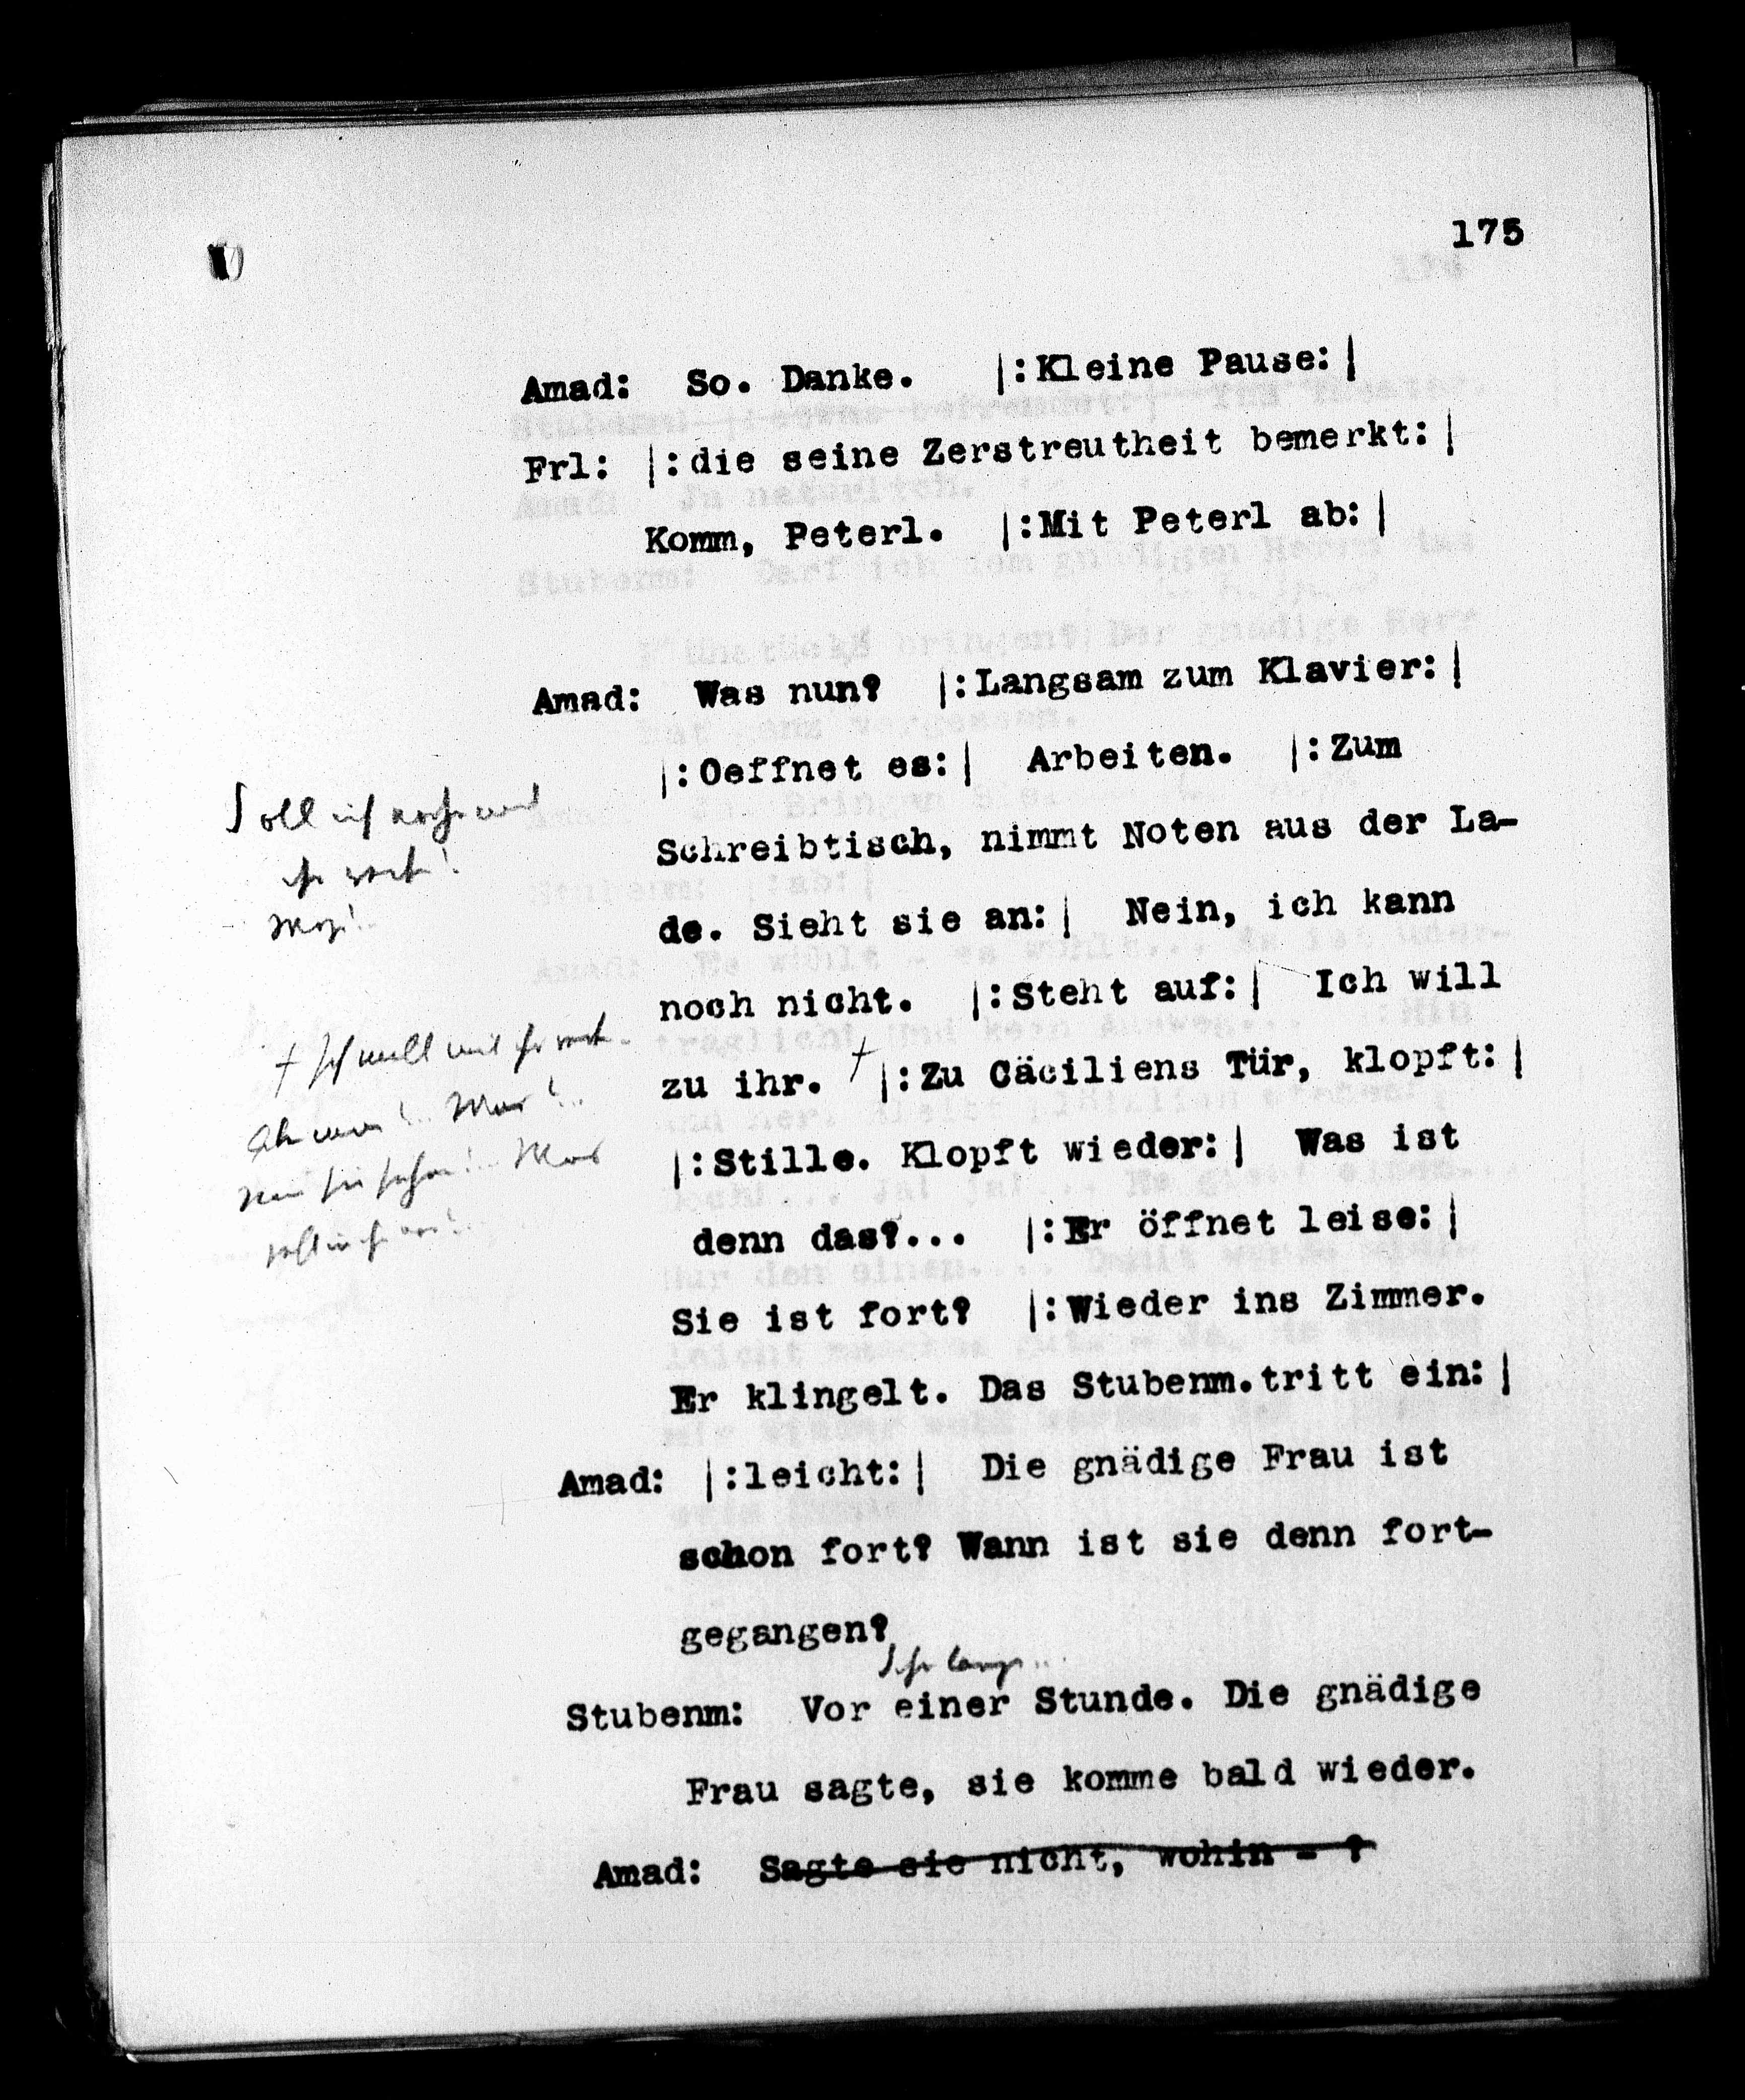 175
Amad: So. Danke. |:Kleine Pause:|
Frl: |:die seine Zerstreutheit bemerkt:|
Komm, Peterl. |:Mit Peterl ab:|
Amad: Was nun? |:Langsam zum Klavier:|
|:Oeffnet es:| Arbeiten. |:Zum
Soll ich
Schreibtisch, nimmt Noten aus der La-
de. Sieht sie an:| Nein, ich kann
noch nicht. |:Steht auf:| Ich will
† Ich will mit ihr
zu ihr. † |:Zu Cäciliens Tür, klopft:|
|:Stille. Klopft wieder:| Was ist
denn das?... |:Er öffnet leise:|
Sie ist fort? |:Wieder ins Zimmer.
Er klingelt. Das Stubenm.tritt ein:|
Amad: |:leicht:| Die gnädige Frau ist
schon fort? Wann ist sie denn fort-
gegangen?
Stubenm: Vor einer Stunde. Die gnädige
Frau sagte, sie komme bald wieder.
Amad: Sagte sie nicht, wohin - ?